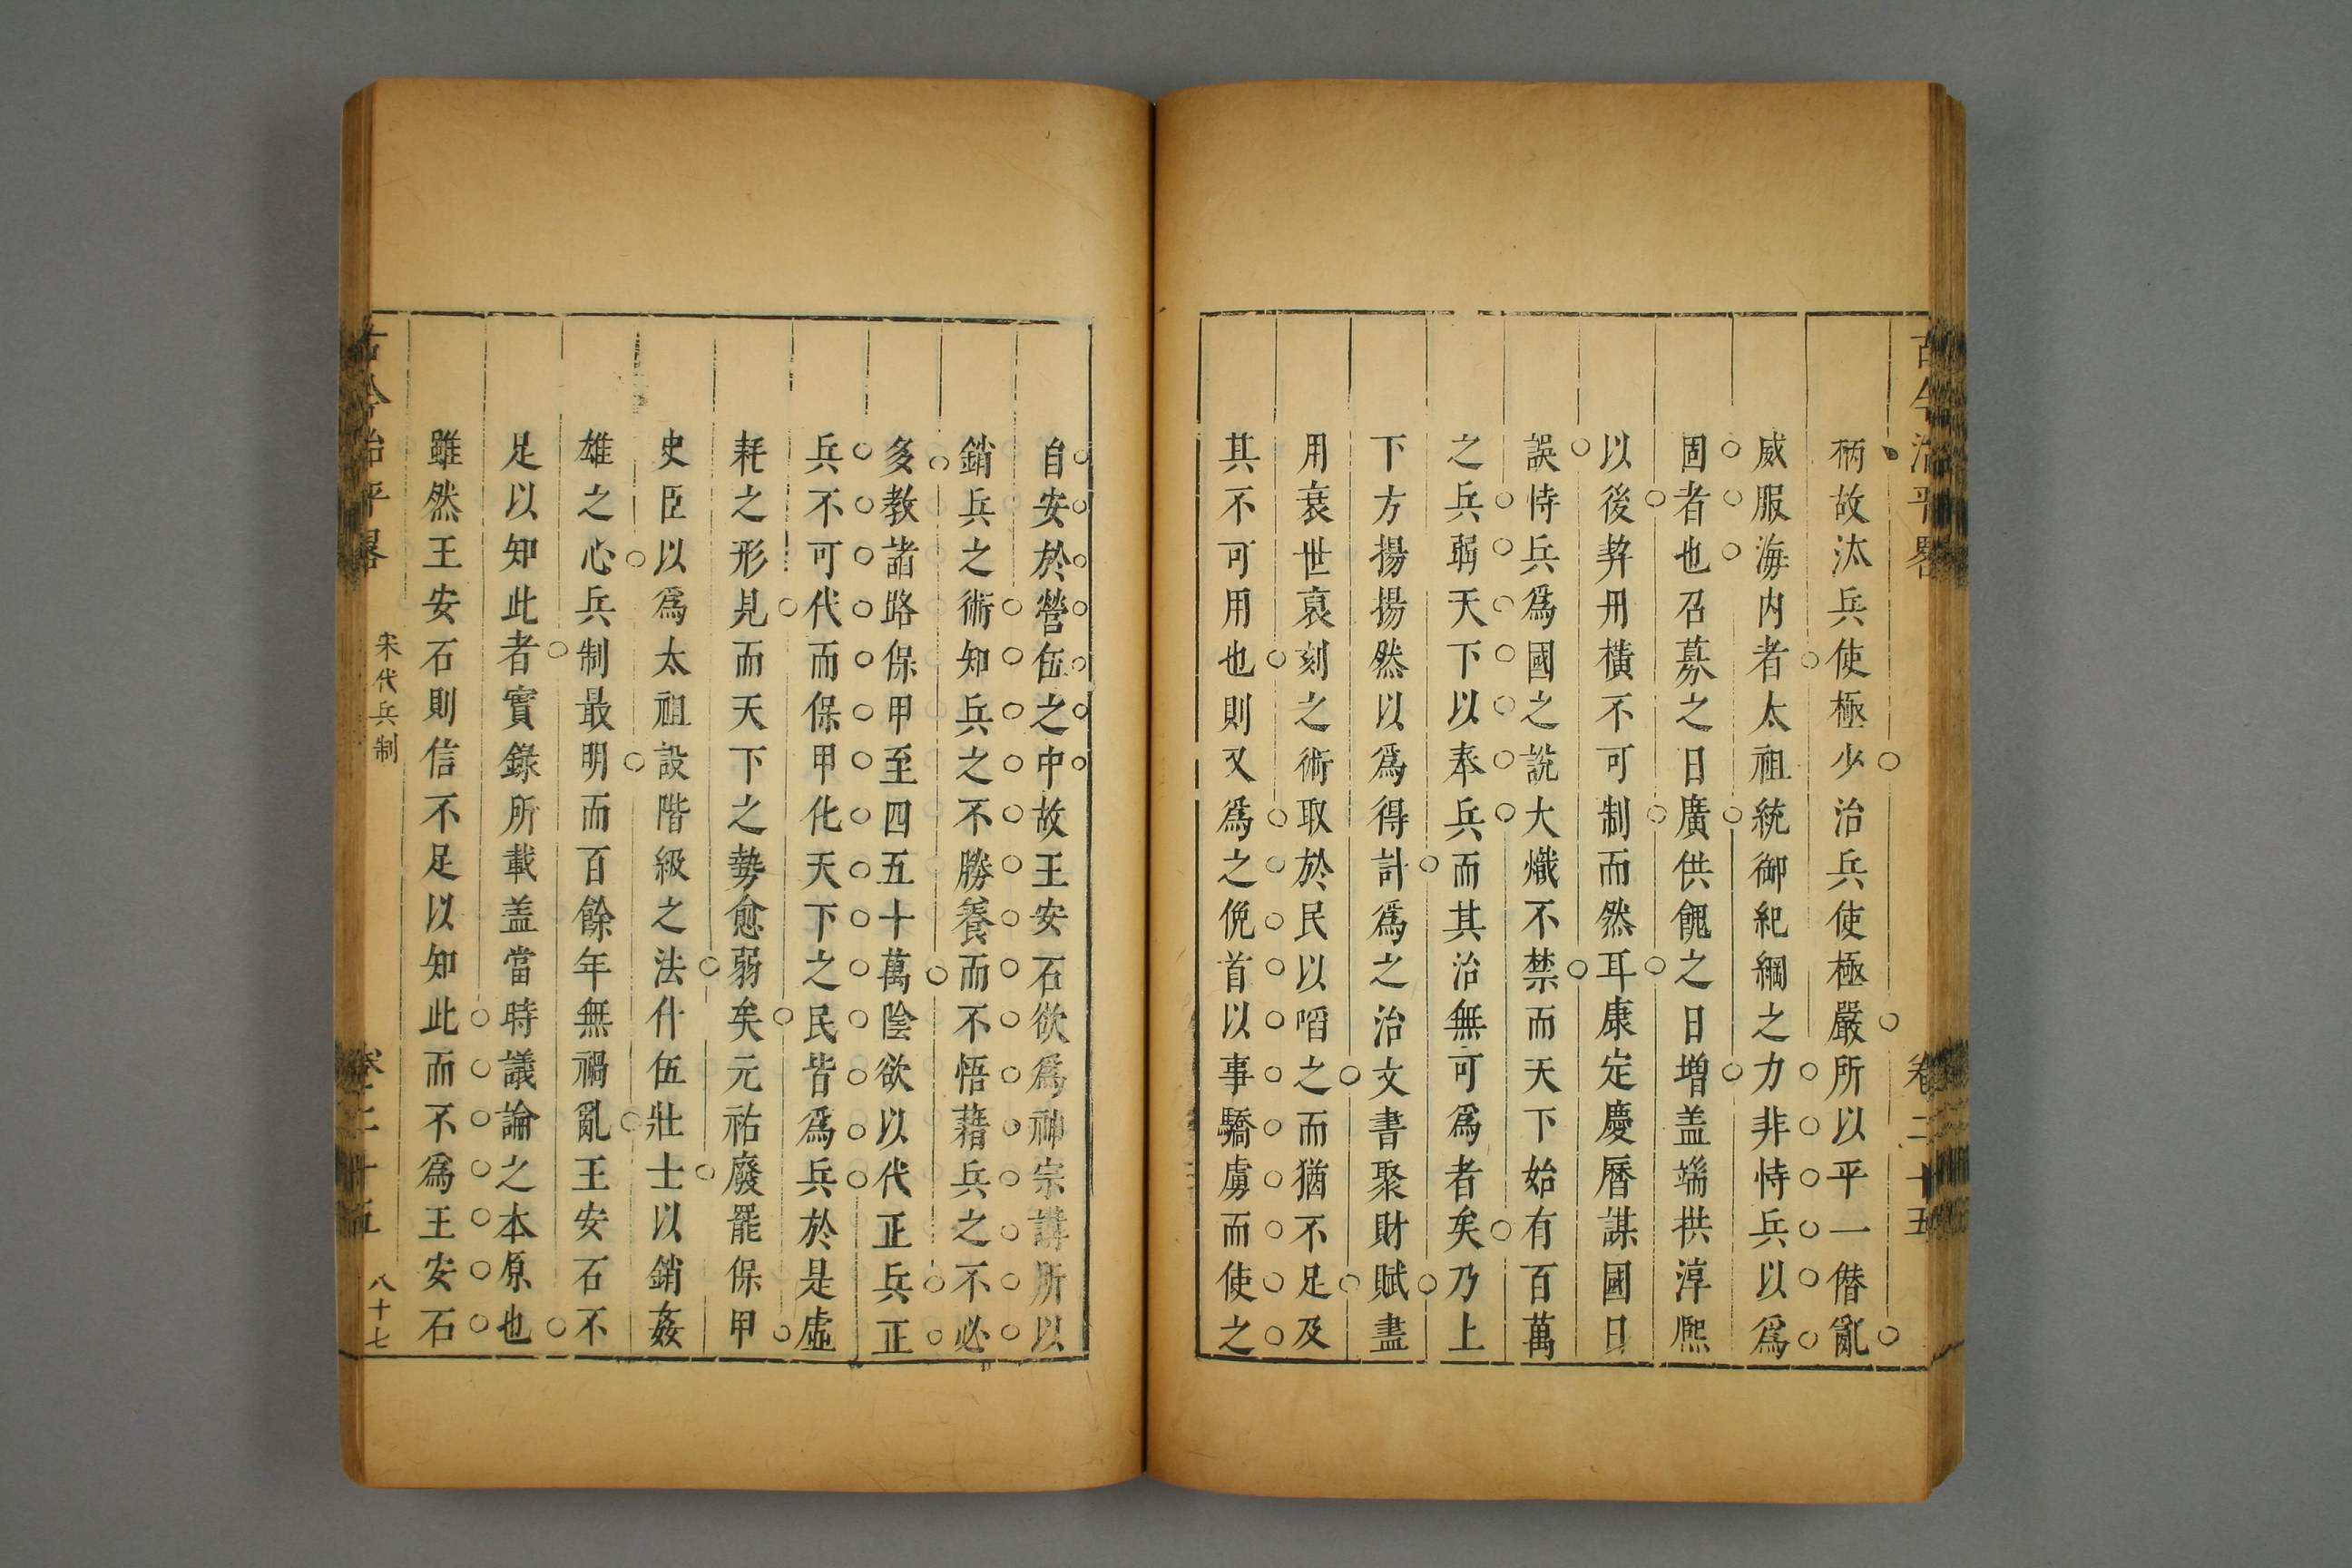 古今治平畧
卷二十五
柄故汰兵使極少治兵使極嚴所以平一僭亂
威服海内者太祖統御紀綱之力非恃兵以爲
固者也召募之日廣供餽之日增盖端拱淳熈
以後契丹橫不可制而然耳康定慶曆謀國日
誤恃兵爲國之說大熾不禁而天下始有百萬
之兵弱天下以奉兵而其治無可爲者矣乃上
下方揚揚然以爲得計爲之治文書聚財賦盡
用衰世裒刻之術取於民以啗之而猶不足及
其不可用也則又爲之俛首以事驕虜而使之
自安於營伍之中故王安石欲爲神宗講所以
銷兵之術知兵之不勝養而不悟藉兵之不必
多教諸路保甲至四五十萬陰欲以代正兵正
兵不可代而保甲化天下之民皆爲兵於是虛
耗之形見而天下之勢愈弱矣元祐廢罷保甲
史臣以爲太祖設階級之法什伍壯士以銷姦
雄之心兵制最明而百餘年無禍亂王安石不
足以知此者實錄所載盖當時議論之本原也
雖然王安石則信不足以知此而不爲王安石
古今治平畧
宋代兵制
卷二十五
八十七